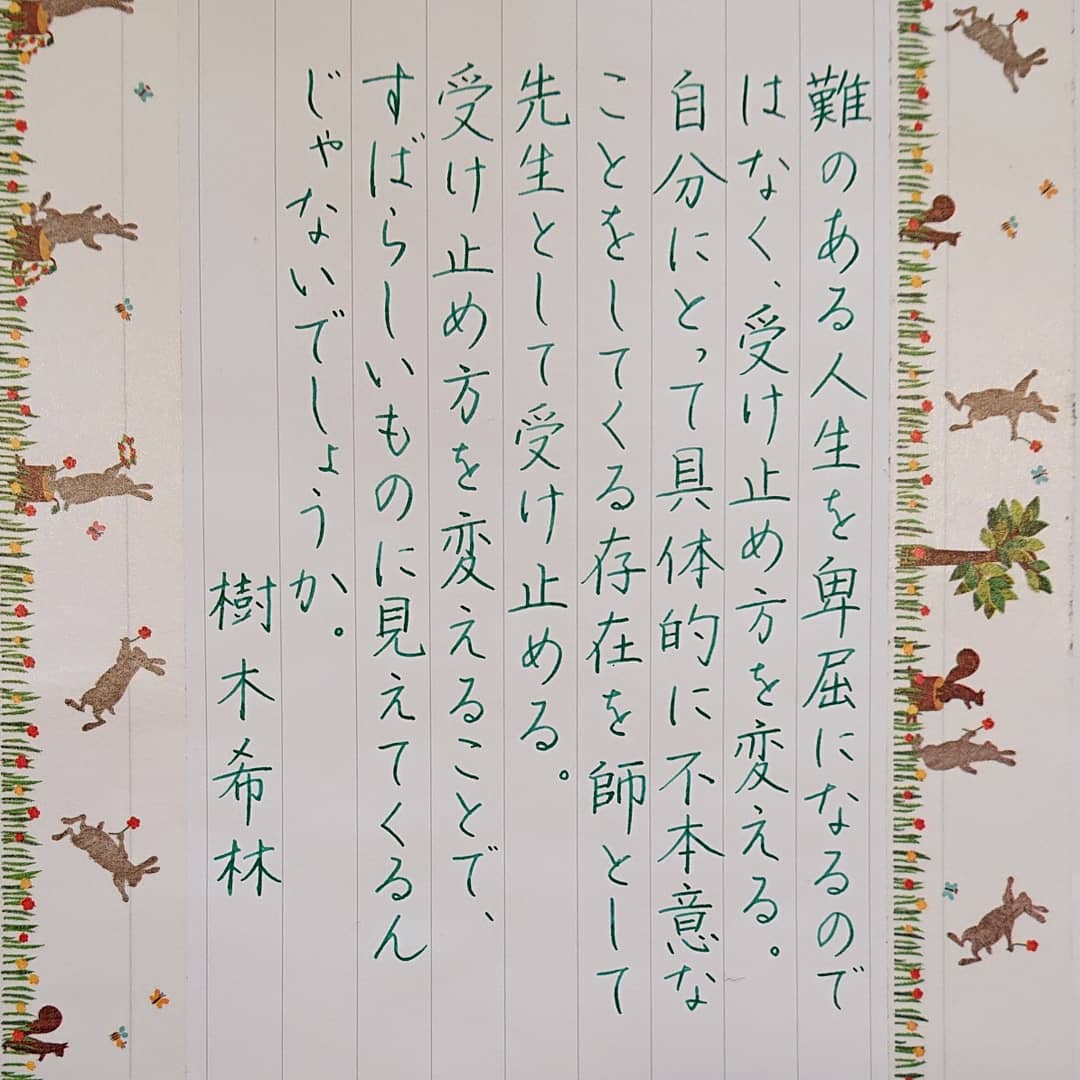 難のある人生を卑屈になるので
はなく、受け止め方を変える。
自分にとって具体的に不本意な
ことをしてくる存在を師として
先生として受け止める。
受け止め方を変えることで、
すばらしいものに見えてくるん
じゃないでしょうか。
樹木希林